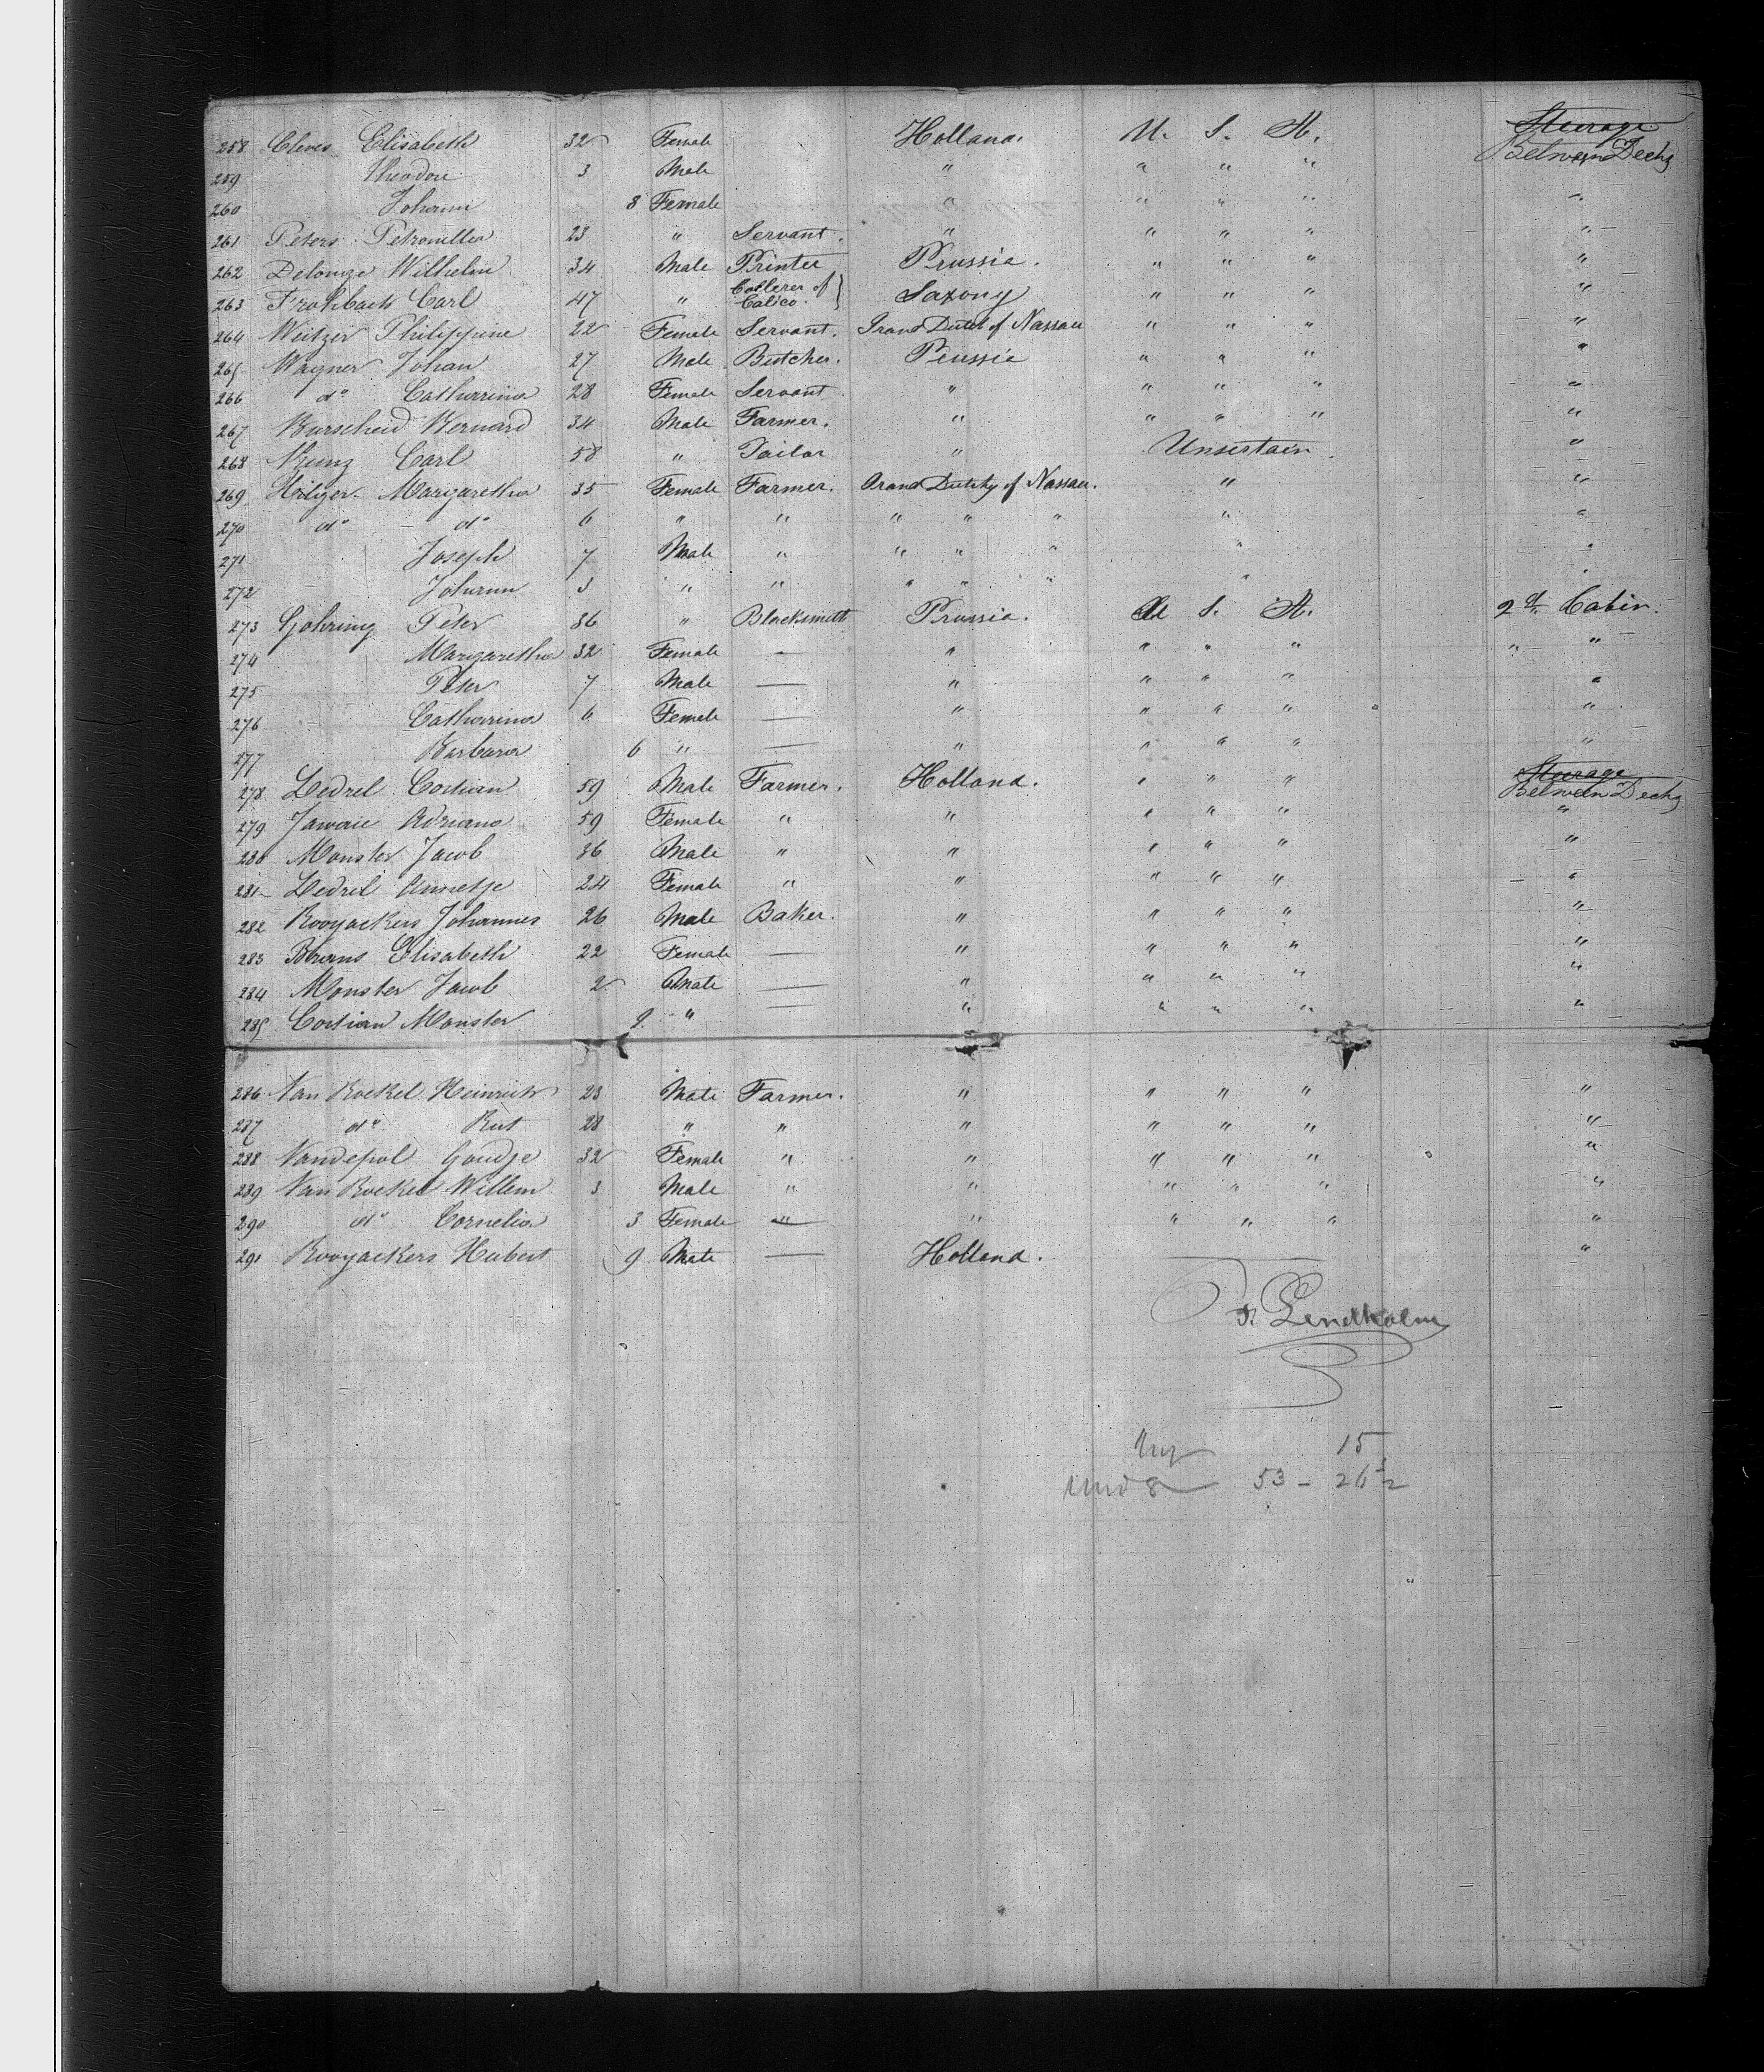 258 Cleves Elisabeth 32 Female Holland. U. S. A. Steerage
Between Decks
259 Theodore 3 Male " " " "
260 Johann 8 Female " " " " "
261 Peters Petronella 23 " Servant. " " " " "
262 Delonge Wilhelm 34 Male Printer Prussia. " " " "
263 Frohbach Carl 47 " Collerer of Calico. } Saxony " " " "
264 Weitzer Philippine 22 Female Servant. Grand Dutch of Nassau " " " "
265 Wagner Johan 27 Male Butcher. Prussia " " " "
266 do Catharina 28 Female Servant " " " " "
267 Burscheid Bernard 34 Male Farmer. " " " " "
268 Kunz Carl 58 " Tailor " Unsertain. "
269 Hilger Margaretha 35 Female Farmer. Grand Dutchy of Nassau. " "
270 do do 6 " " " " " " "
271 Joseph 7 Male " " " " " "
272 Johann 3 " " " " " " "
273 Gohring Peter 36 " Blacksmith Prussia. U S. A. 2d Cabin.
274 Margaretha 32 Female — " " " " " "
275 Peter 7 Male — " " " " "
276 Catharina 6 Female — " " " " "
277 Barbara 6 " — " " " " "
278 Ledrel Costian 59 Male Farmer. Holland. " " " Steerage
Between Decks
279 Adriana 59 Female " " " " " "
280 Monster Jacob 36 Male " " " " " "
281 Ledrel Annetje 24 Female " " " " " "
282 Rooyackers Johannes 26 Male Baker. " " " " "
283 Elisabeth 22 Female — " " " " "
284 Monster Jacob 2 Male — " " " " "
285 Costian Monster 9. " — " " " " "
286 Van Roekel Heinrich 23 Male Farmer. " " " " "
287 do Rut 28 " " " " " " "
288 Vandepol Goudje 32 Female " " " " " "
289 Van Roekel Willem 3 Male " " " " " "
290 do Cornelia 3 Female " " " " " "
291 Rooyackers Hubert 9 Male — Holland. "
Lendholm
15
Und 8 53 - 26 1/2